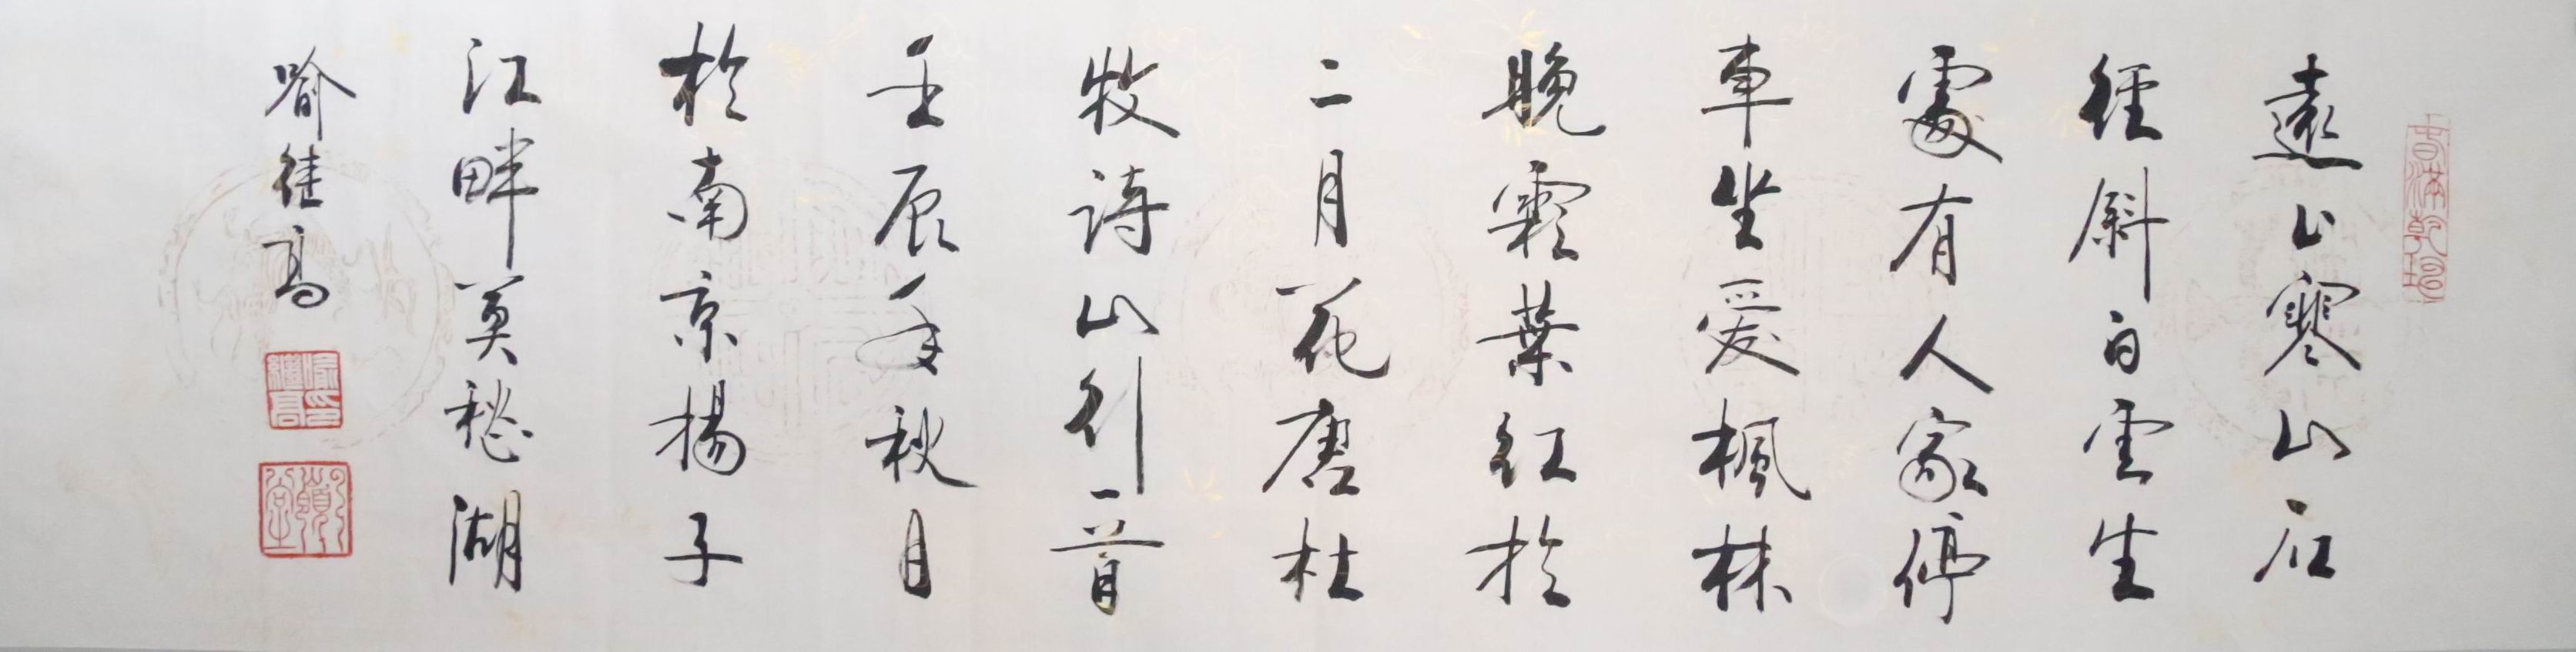 遠上寒山石
徑斜白雲生
處有人家停
車坐愛楓林
晚霜葉紅於
二月花唐杜
牧詩山行一首
壬辰年秋月
於南京揚子
江畔莫愁湖
喻继高
喻繼高印